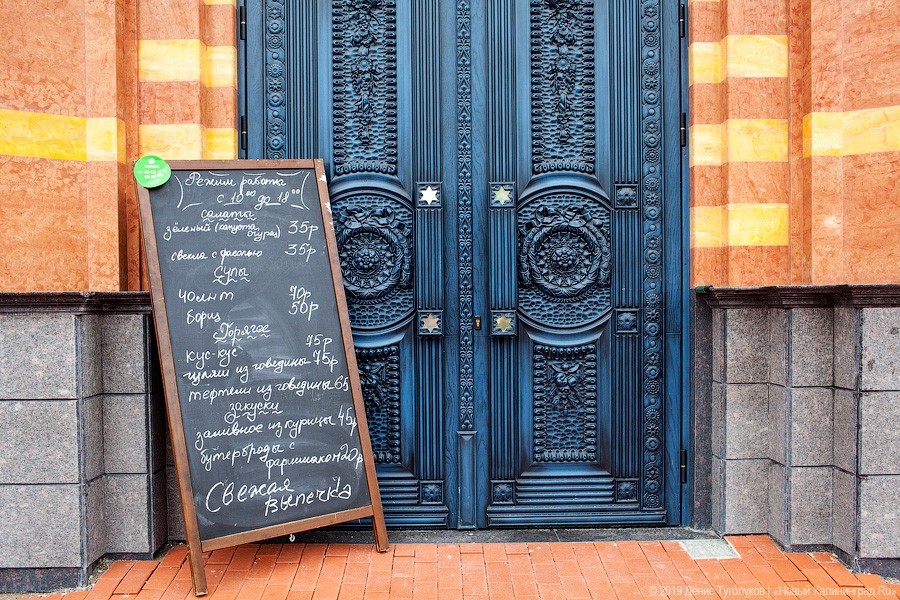 Режим работы
с 10⁰⁰ до 18⁰⁰
салаты
зелёный (капуста, 35р
огурец)
свекла с фасолью 35р
Супы
чолнт 70р
борщ 50р
Горячее
кус-кус 75р
гуляш из говядины 75р
тефтели из говядины 65
закуски
заливное из курицы 45р
бутерброды с
фаршмаком 20р
Свежая
выпечка
© 2019 Денис Туголуков | «Новый Калининград.Ru»